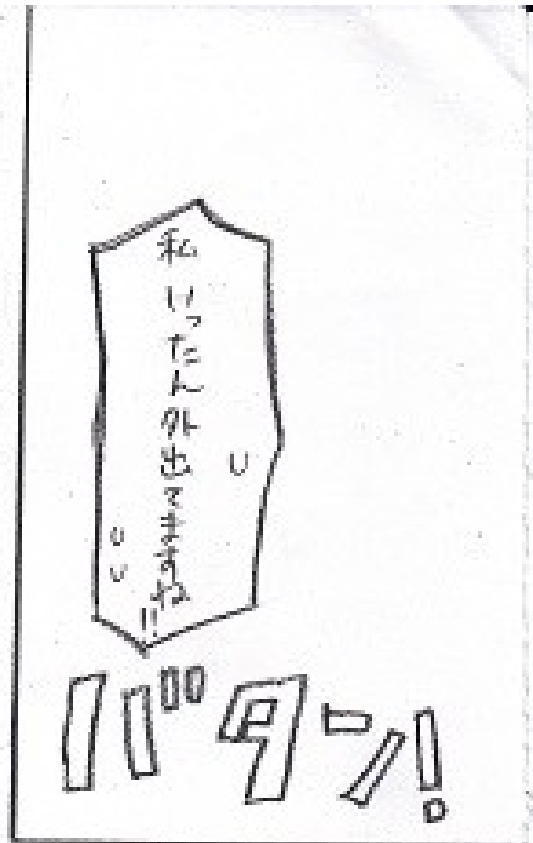 私いったん外出てますね!!
バタン!